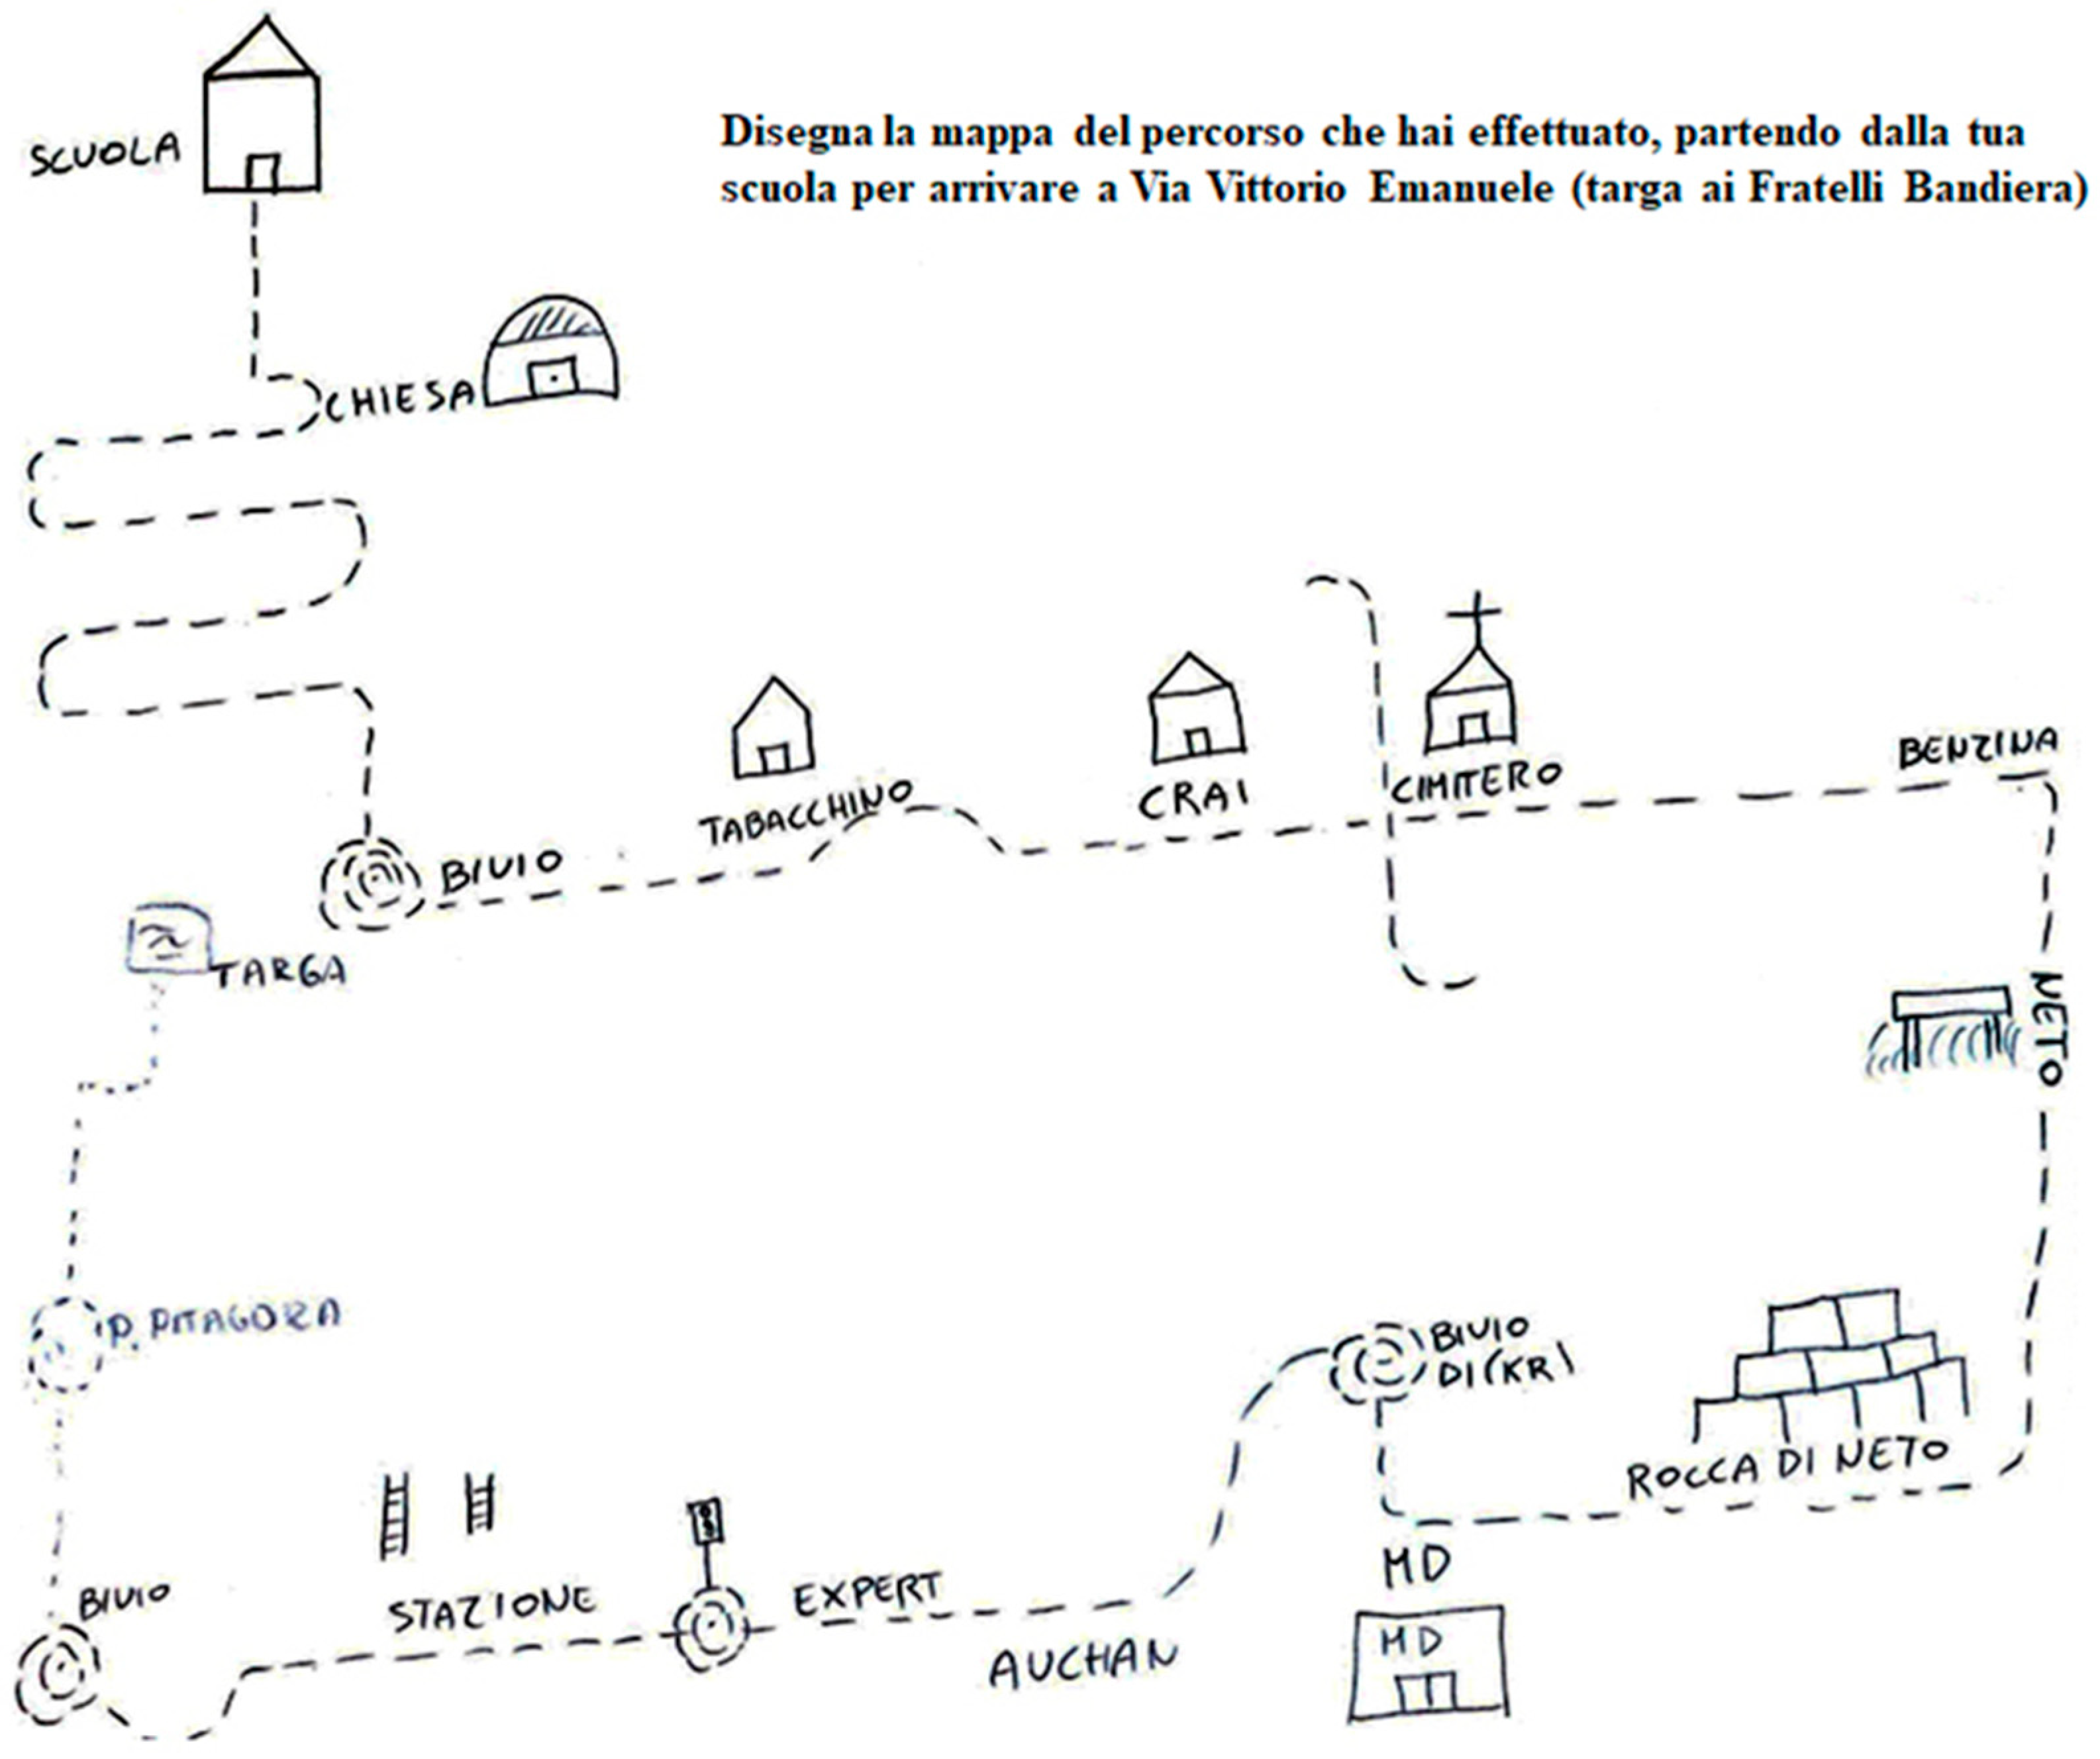 SCUOLA
Disegna la mappa del percorso che hai effettuato, partendo dalla tua
scuola per arrivare a Via Vittorio Emanuele (targa ai Fratelli Bandiera)
CHIESA
TABACCHINO
CRAI
CIMITERO
BENZINA
BIVIO
TARGA
NETO
P. PITAGORA
BIVIO
DI (KR)
ROCCA DI NETO
MD
MD
BIVIO
STAZIONE
EXPERT
AUCHAN